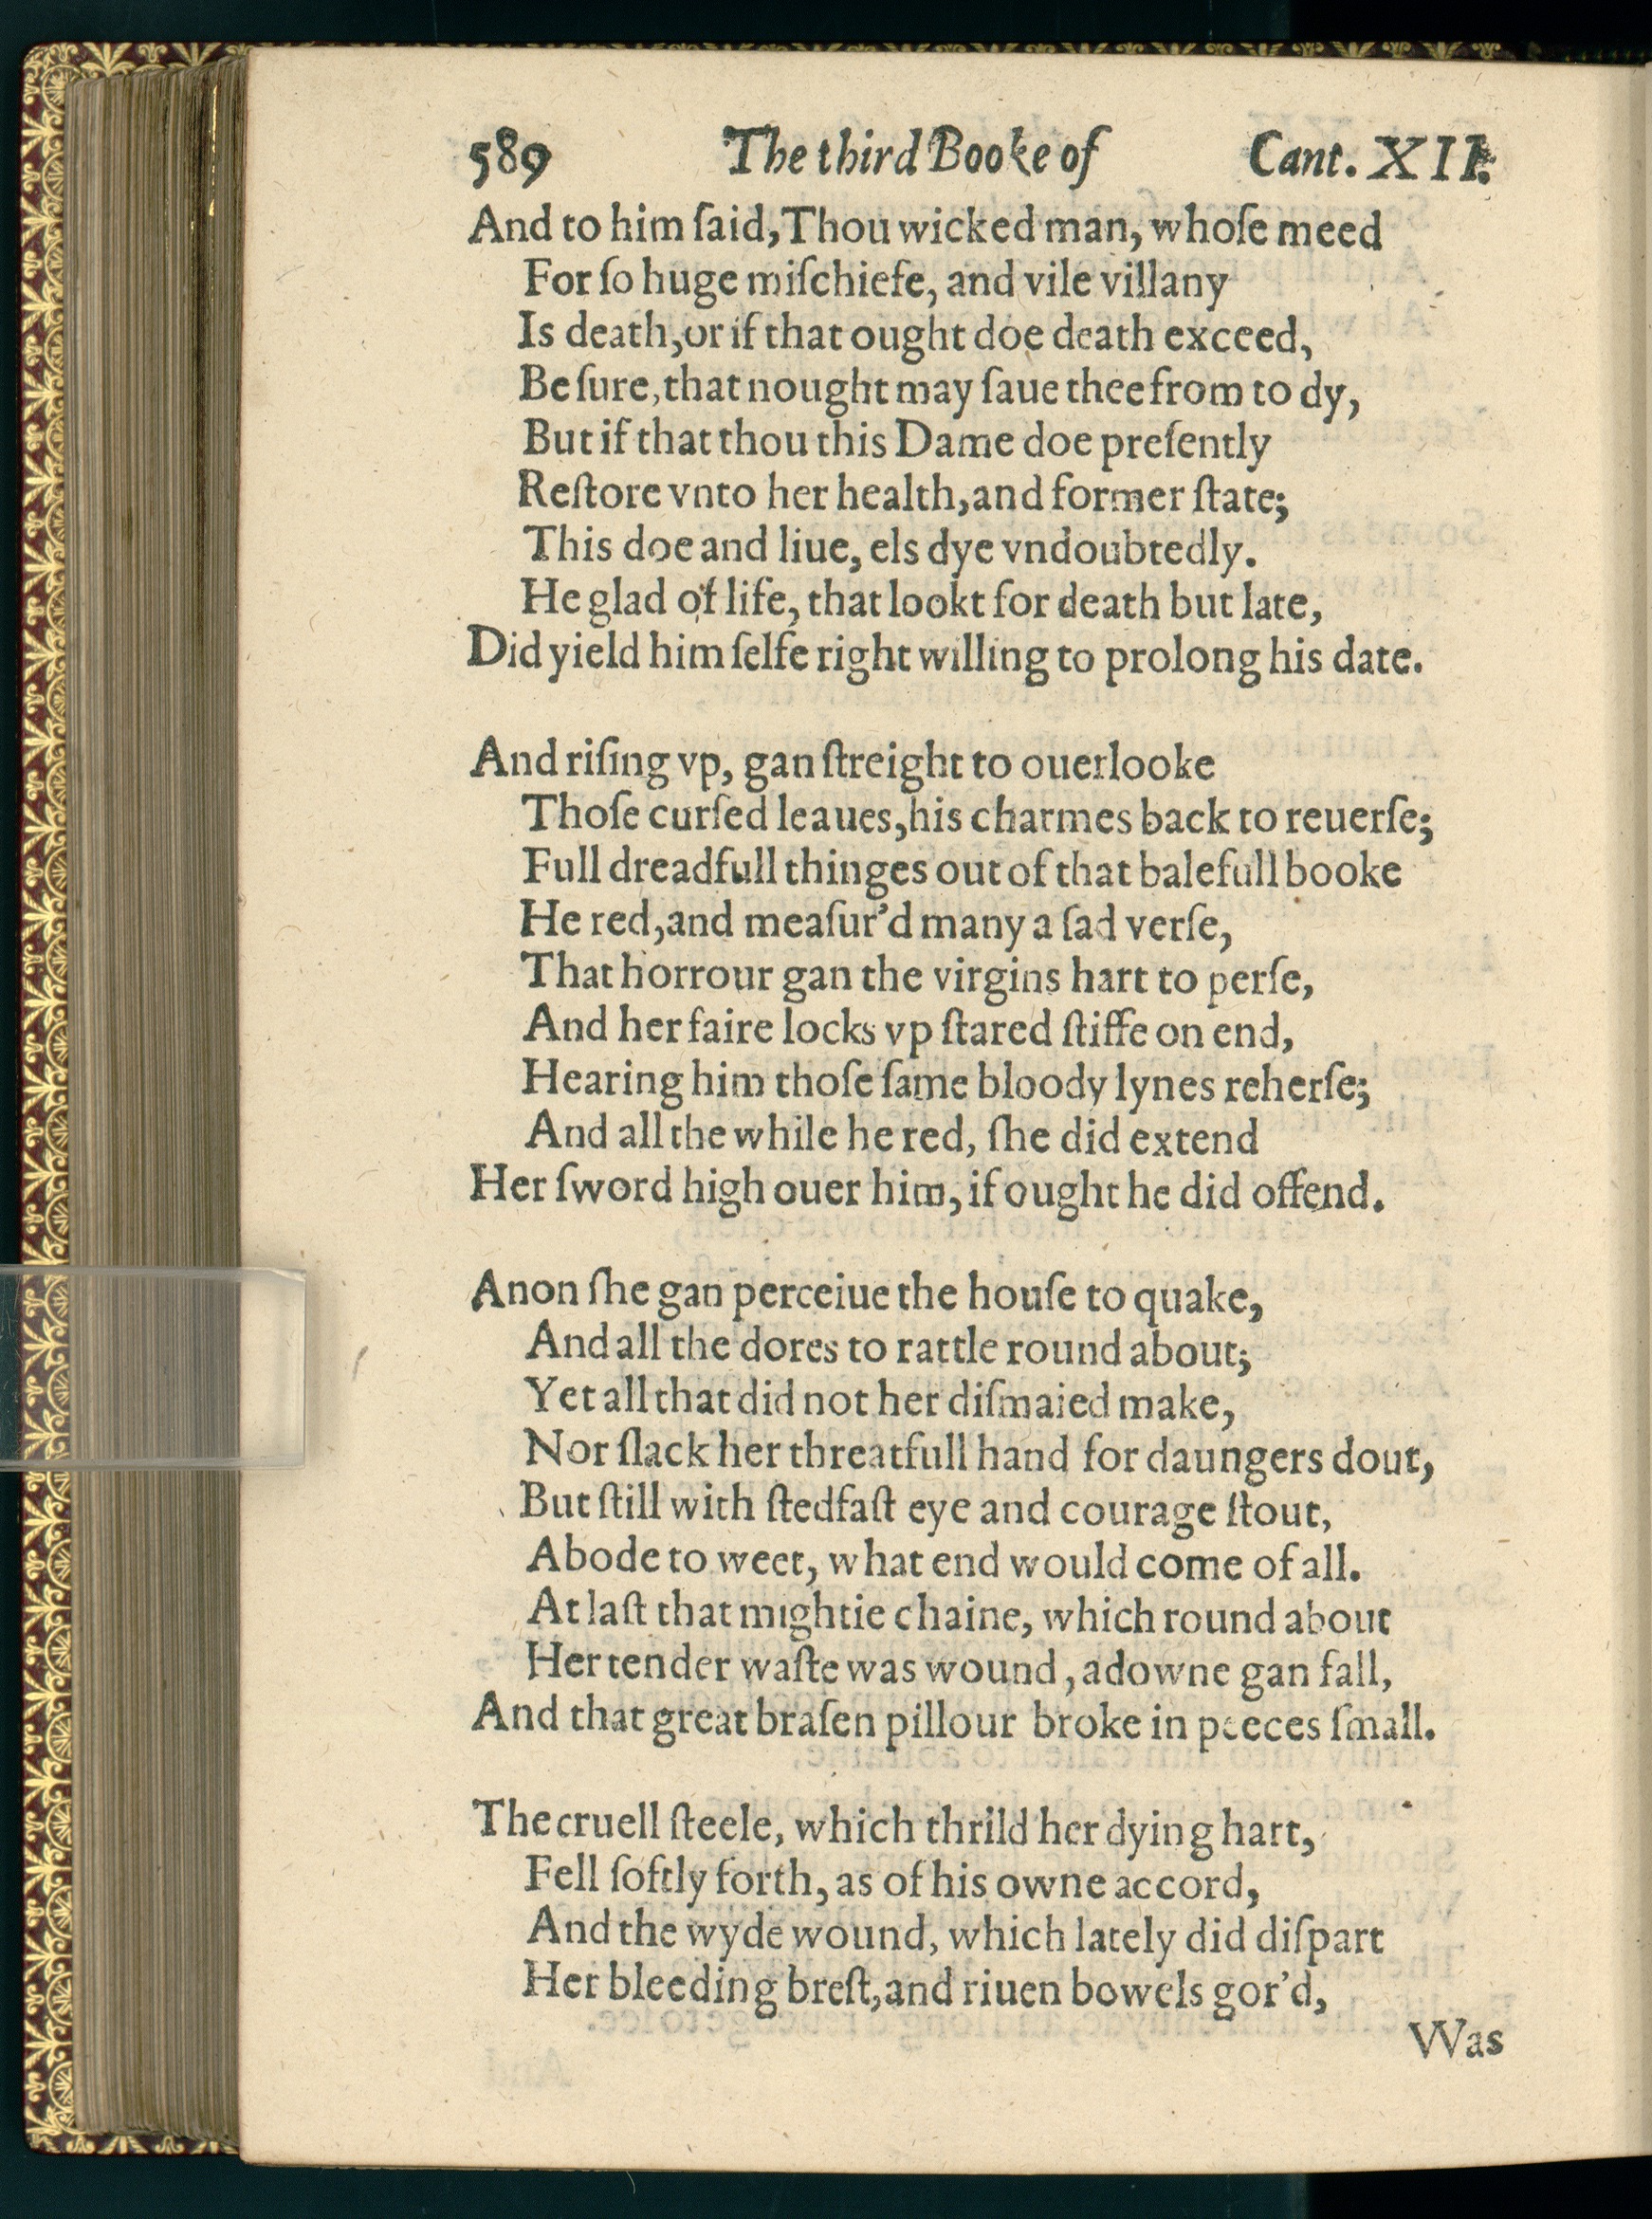 589 The third Booke of Cant. XII.
And to him ſaid, Thou wicked man, whoſe meed
For ſo huge miſchiefe, and vile villany
Is death, or if that ought doe death exceed,
Be ſure, that nought may ſaue thee from to dy,
But if that thou this Dame doe preſently
Reſtore vnto her health, and former ſtate;
This doe and liue, els dye vndoubtedly.
He glad of life, that lookt for death but late,
Did yield him ſelfe right willing to prolong his date.
And riſing vp, gan ſtreight to ouerlooke
Thoſe curſed leaues, his charmes back to reuerſe;
Full dreadfull thinges out of that balefull booke
He red, and meaſur'd many a ſad verſe,
That horrour gan the virgins hart to perſe,
And her faire locks vp ſtared ſtiffe on end,
Hearing him thoſe ſame bloody lynes reherſe;
And all the while he red, ſhe did extend
Her ſword high ouer him, if ought he did offend.
Anon ſhe gan perceiue the houſe to quake,
And all the dores to rattle round about;
Yet all that did not her diſmaied make,
Nor ſlack her threatfull hand for daungers dout,
But ſtill with ſtedfaſt eye and courage ſtout,
Abode to weet, what end would come of all.
At laſt that mightie chaine, which round about
Her tender waſte was wound, adowne gan fall,
And that great braſen pillour broke in peeces ſmall.
The cruell ſteele, which thrild her dying hart,
Fell ſoftly forth, as of his owne accord,
And the wyde wound, which lately did diſpart
Her bleeding breſt, and riuen bowels gor'd,
Was